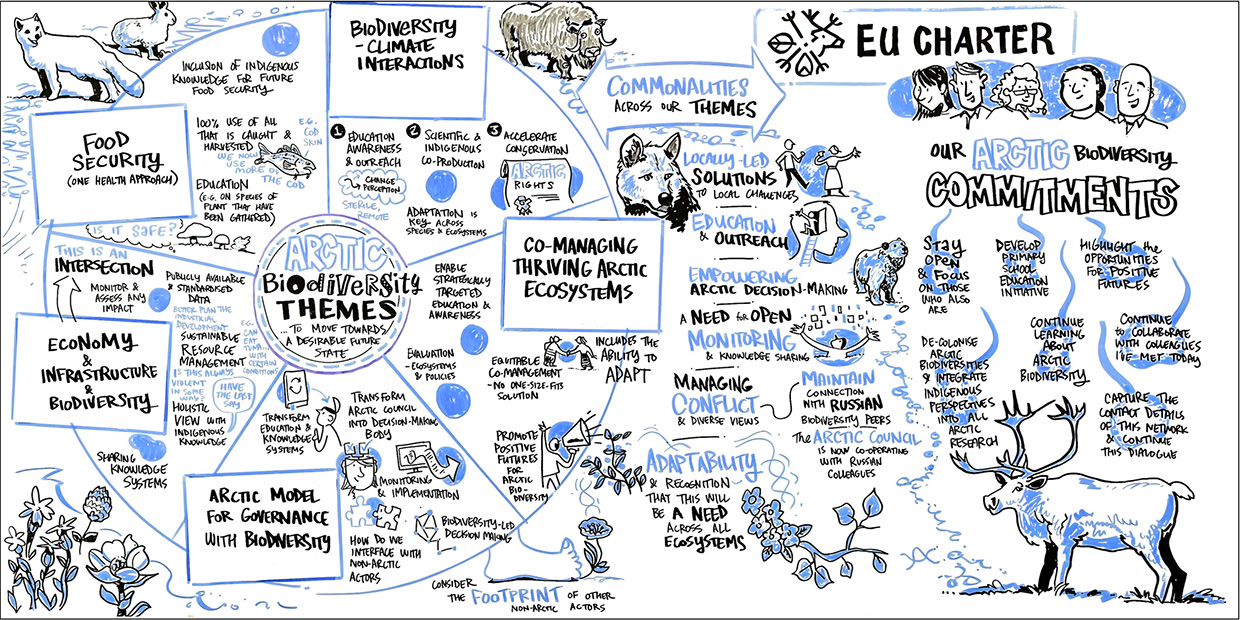 BIODIVERSITY
- CLIMATE
INTERACTIONS
1 EDUCATION
AWARENESS
& OUTREACH
CHANGE
PERCEPTION
STERILE,
REMOTE
2 SCIENTIFIC &
INDIGENOUS
CO-PRODUCTION
ADAPTATION IS
KEY ACROSS
SPECIES & ECOSYSTEMS
3 ACCELERATE
CONSERVATION
ARCTIC
RIGHTS
INCLUSION OF INDIGENOUS
KNOWLEDGE FOR FUTURE
FOOD SECURITY
FOOD
SECURITY
(ONE HEALTH APPROACH)
100% USE OF ALL
THAT IS CAUGHT &
HARVESTED
E.G.
COD
SKIN
WE NOW
USE
MORE OF
THE COD
EDUCATION
(E.G. ON SPECIES OF
PLANT THAT HAVE
BEEN GATHERED)
IS IT SAFE?
THIS IS AN
INTERSECTION
MONITOR &
ASSESS ANY
IMPACT
PUBLICLY AVAILABLE
& STANDARDISED
DATA
BETTER PLAN THE
INDUSTRIAL
DEVELOPMENT
SUSTAINABLE
RESOURCE
MANAGEMENT
E.G.
CAN
EAT
TUNA...
WITH
CERTAIN
CONDITIONS
IS THIS ALWAYS
VIOLENT
IN SOME
WAY?
HAVE
THE LAST
SAY
HOLISTIC
VIEW WITH
INDIGENOUS
KNOWLEDGE
ECONOMY
&
INFRASTRUCTURE
&
BIODIVERSITY
SHARING
KNOWLEDGE
SYSTEMS
ARCTIC
BIODIVERSITY
THEMES
...TO MOVE TOWARDS
A DESIRABLE FUTURE
STATE
CO-MANAGING
THRIVING ARCTIC
ECOSYSTEMS
ENABLE
STRATEGICALLY
TARGETED
EDUCATION &
AWARENESS
EVALUATION
- ECOSYSTEMS
& POLICIES
EQUITABLE
CO-MANAGEMENT
- NO ONE-SIZE-FITS
SOLUTION
INCLUDES THE
ABILITY TO
ADAPT
PROMOTE
POSITIVE
FUTURES
FOR
ARCTIC
BIO-
DIVERSITY
ARCTIC MODEL
FOR GOVERNANCE
WITH BIODIVERSITY
TRANSFORM
EDUCATION &
KNOWLEDGE
SYSTEMS
TRANSFORM
ARCTIC COUNCIL
INTO DECISION-MAKING
BODY
MONITORING
& IMPLEMENTATION
BIODIVERSITY-LED
DECISION MAKING
HOW DO WE
INTERFACE WITH
NON-ARCTIC
ACTORS
CONSIDER
THE FOOTPRINT OF OTHER
NON-ARCTIC ACTORS
COMMONALITIES
ACROSS OUR THEMES
LOCALLY-LED
SOLUTIONS
TO LOCAL CHALLENGES
EDUCATION
& OUTREACH
EMPOWERING
ARCTIC DECISION-MAKING
A NEED FOR OPEN
MONITORING
& KNOWLEDGE SHARING
MANAGING
CONFLICT
& DIVERSE VIEWS
MAINTAIN
CONNECTION
WITH RUSSIAN
BIODIVERSITY PEERS
THE ARCTIC COUNCIL
IS NOW CO-OPERATING
WITH RUSSIAN
COLLEAGUES
ADAPTABILITY
& RECOGNITION
THAT THIS WILL
BE A NEED
ACROSS ALL
ECOSYSTEMS
EU CHARTER
OUR ARCTIC BIODIVERSITY
COMMITMENTS
STAY
OPEN
& FOCUS
ON THOSE
WHO ALSO
ARE
DEVELOP
PRIMARY
SCHOOL
EDUCATION
INITIATIVE
HIGHLIGHT the
OPPORTUNITIES
FOR POSITIVE
FUTURES
DE-COLONISE
ARCTIC
BIODIVERSITIES
& INTEGRATE
INDIGENOUS
PERSPECTIVES
INTO ALL
ARCTIC
RESEARCH
CONTINUE
LEARNING
ABOUT
ARCTIC
BIODIVERSITY
CONTINUE
to COLLABORATE
WITH COLLEAGUES
I'VE MET TODAY
CAPTURE THE
CONTACT DETAILS
OF THIS NETWORK
& CONTINUE
THIS DIALOGUE